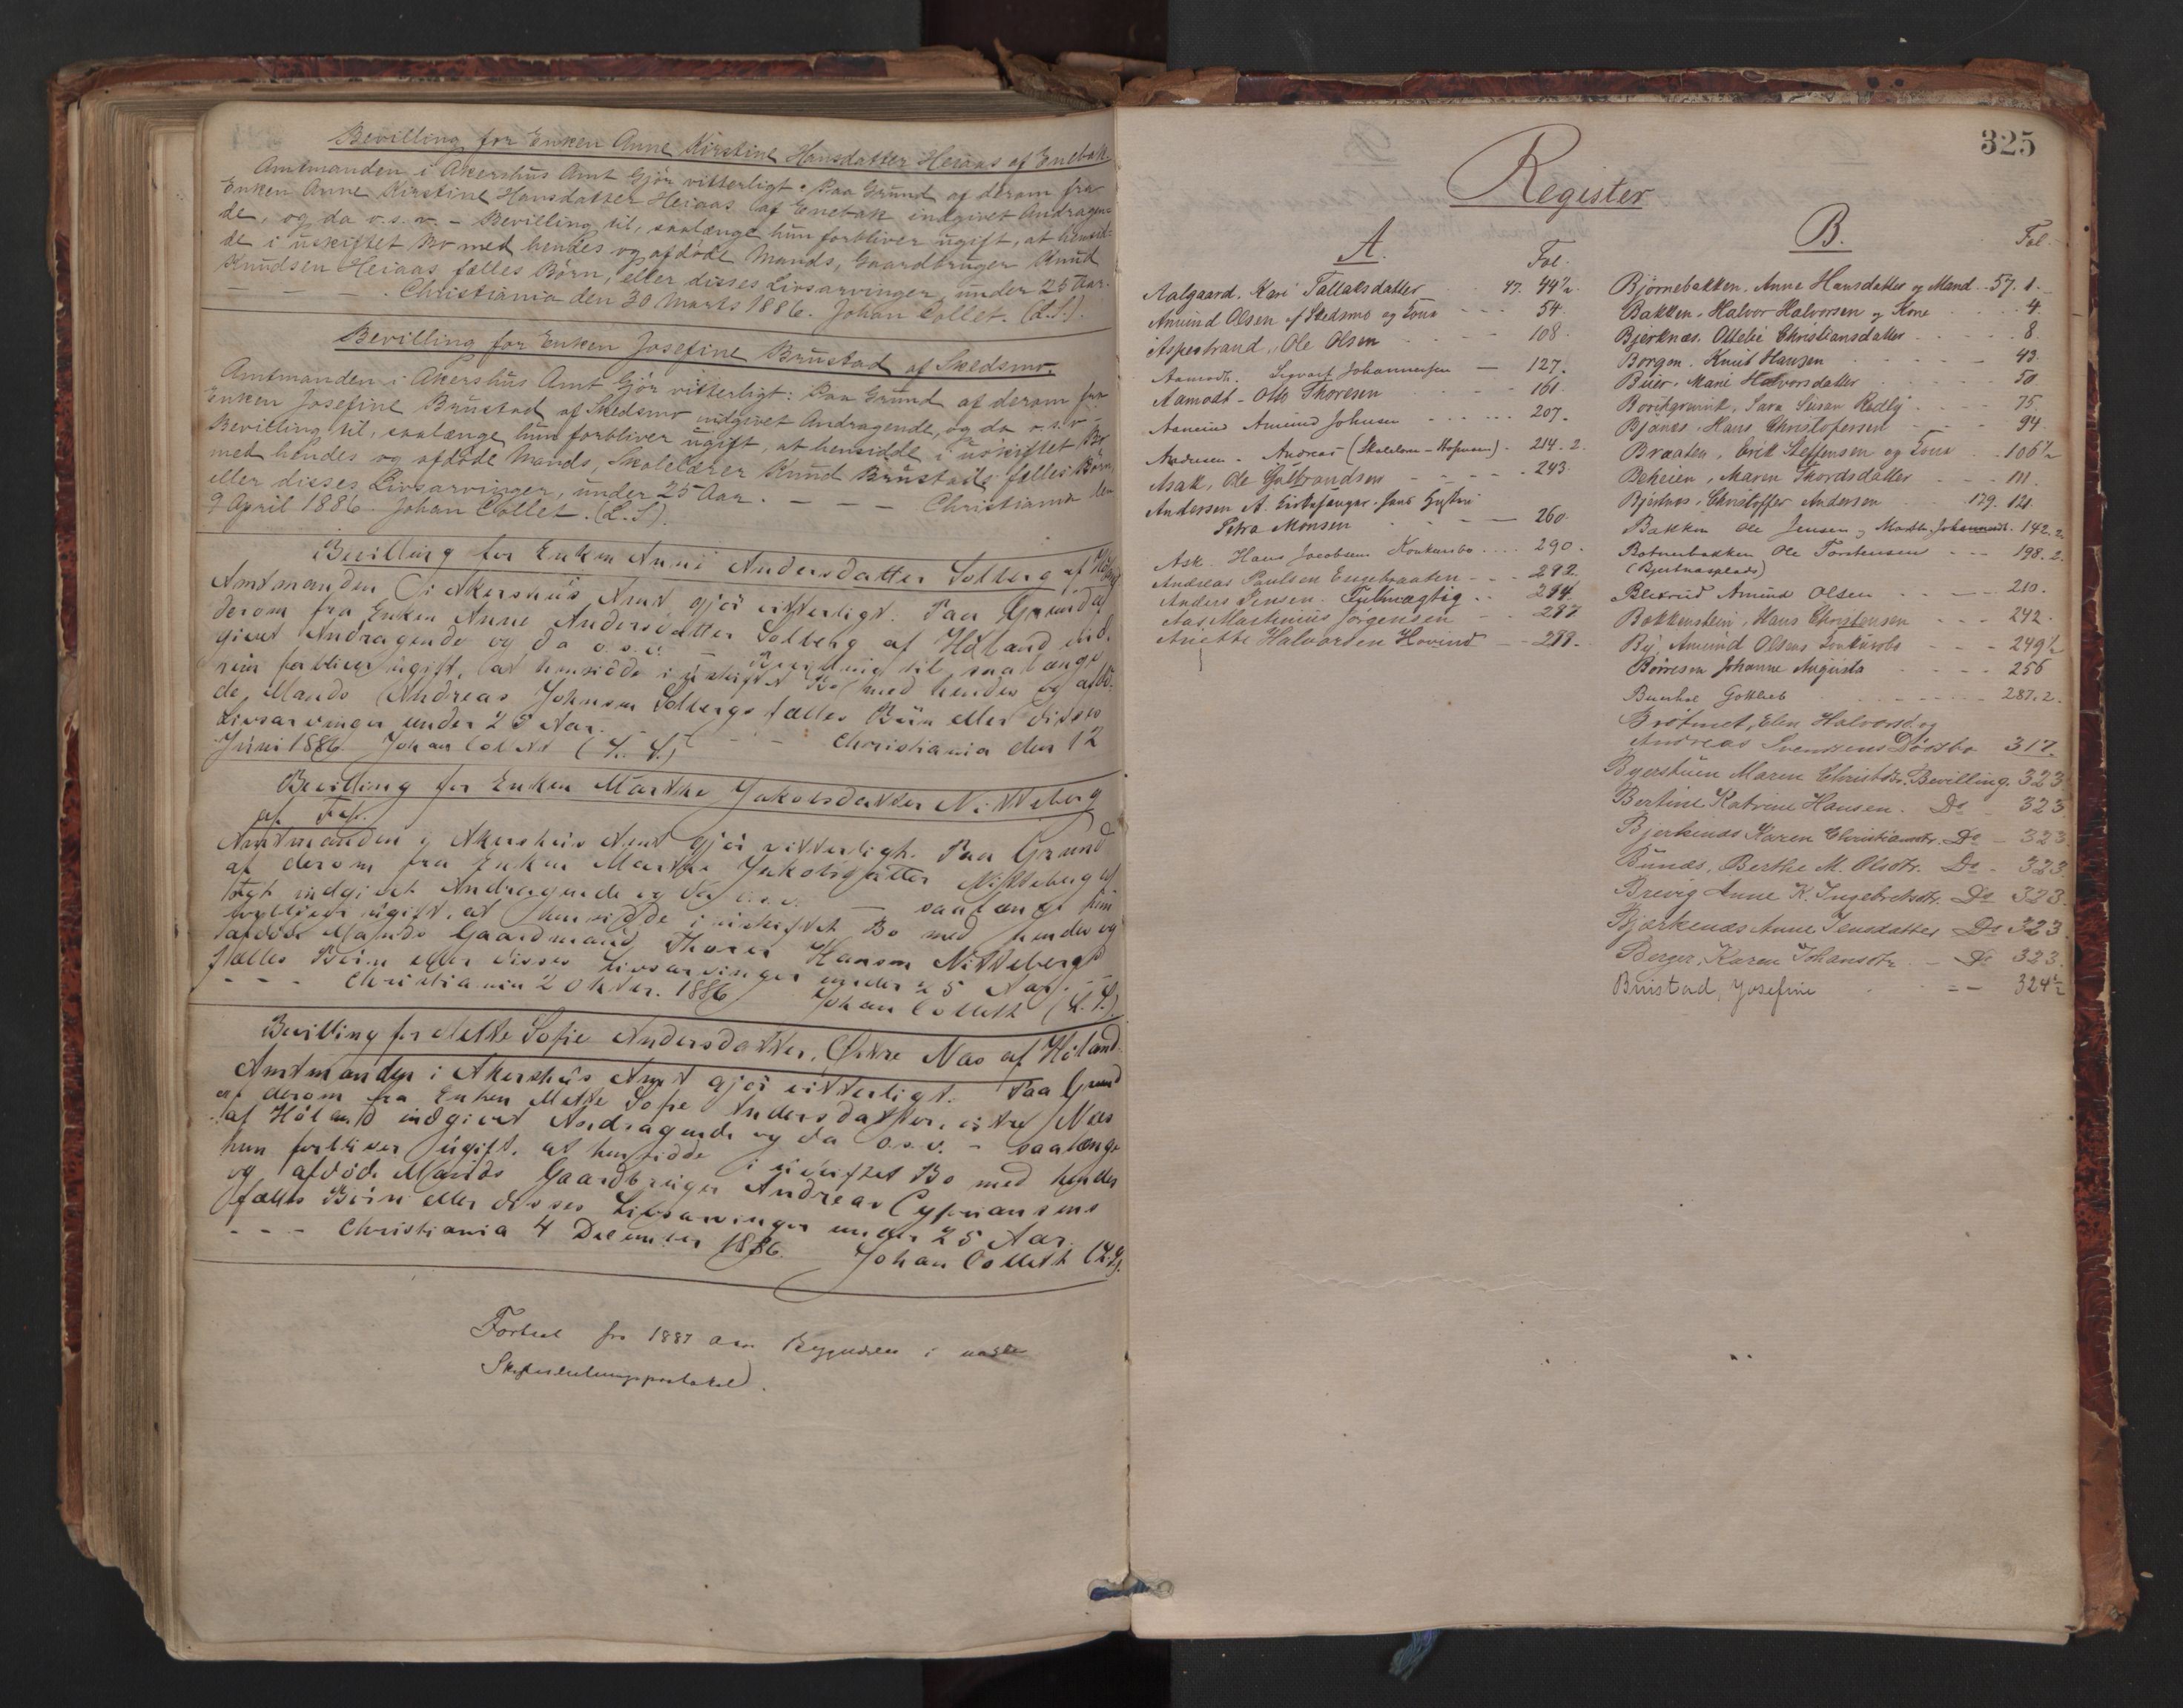 Bevilling for Enken Anne Kirstine Hansdatter Heiaas af Enebak
Amtmanden i Akershus Amt Gjör vitterligt: Paa Grund af derom fra
Enken Anne Kirstine Hansdatter Heiaas af Enebak indgivet Andragen-
de, og da o.s.v. - Bevilling til, saalænge hun forbliver ugift, at hensid-
de i uskiftet Bo med hendes og afdöde Mands, Gaardbruger Knud
Knudsen Heiaas fælles Börn, eller disses Livsarvinger, under 25 Aar.
- - - . Christiania den 30 Marts 1886. Johan Collet. (L.S.).
Bevilling for Enken Josefine Brustad af Skedsmo.
Amtmanden i Akershus Amt Gjör vitterligt: Paa Grund af derom fra
Enken Josefine Brustad af Skedsmo indgivet Andragende, og da o.s.v
Bevilling til, saalænge hun forbliver ugift, at hensidde i uskiftet Bo
med hendes og afdöde Mands, Skolelærer Knud Brustads fælles Börn,
eller disses Livsarvinger, under 25 Aar. - - - Christiania den
9 April 1886. Johan Collet. (L.S).
Bevilling for Enken Anne Andersdatter Solberg af Höland
Amtmanden i Akershus Amt gjör vitterligt. Paa Grund af
derom fra Enken Anne Andersdatter Solberg af Höland ind-
givet Andragende og da o.s.v. - Bevilling til saalænge
hun forbliver ugift, at hensidde i uskiftet Bo med hendes og afdö-
de Mands Andreas Johnsen Solbergs fælles Börn eller disses
Livsarvinger under 25 Aar. - - - Christiania den 12
Juni 1886 Johan Collett (L.S.)
Bevilling for Enken Marthe Jakobsdatter Nitteberg
af Fet.
Amtmanden i Akershus Amt gjör vitterligt. Paa Grund
af derom fra Enken Marthe Jakobsdatter Nitteberg af
Fet indgivet Andragende og da o.s.v. - saalænge hun
forbliver ugift, at hensidde i uskiftet Bo med hendes og
afdöde Mands Gaardmand Thorer Hansen Nittebergs
fælles Börn eller disses Livsarvinger under 25 Aar. -
- - - Christiania 2 Oktbr. 1886 Johan Collett (L.S.)
Bevilling for Mette Sofie Andersdatter, Östre Næs af Höland
Amtmanden i Akershus Amt gjör vitterligt. Paa Grund
af derom fra Enken Mette Sofie Andersdatter, östre Næs
af Höland indgivet Andragende og da o.s.v. - saalænge
hun forbliver ugift, at hensidde i uskiftet Bo med hendes
og afdöde Mands Gaardbruger Andreas Cyprians ens
fælles Börn eller disses Livsarvinger under 25 Aar.
- - - Christiania 4 December 1886. Johan Collett (L.S).
Fortsat fra 1887 Aars Begyndelse i næste
Skifteslutningsprotokol.
325
Register
A.
Fol.
Aalgaard, Kari Tallaksdatter 47. 44½.
Amund Olsen af Skedsmo og Kone - - - 54.
Aspestrand, Ole Olsen - - - 108.
Aamodt. Sigvart Johannesen - 127.
Aamodt - Otto Thoresen - - 161.
Amund Johnsen - - - 207.
Andresen - Andreas 214. 2.
Asak, Ole Gulbrandsen - - - 243.
Andersen A.
Petra Monsen - - - 260.
Ask Hans Jacobsen Konkursbo . . . . 290.
Andreas Paulsen Engebraaten - - - 292.
Anders Jensen. Fuldmægtig . . 294.
Aas, Martinius Jörgensen - - 287
Anette Halvorsen Hovind - 288.
B.
Fol.
Bjørnebakken, Anne Hansdatter og Mand . . 57. 1.
Bakken, Halvor Halvorsen og Kone . . . . 4.
Bjerknæs. Ottelie Christiansdatter . . . . 8.
Borgen. Knut Hansen - - - 43.
Buer, Marie Halvorsdatter - - 50
Sara Susan Redly - - - 75.
Bjanes, Hans Christofersen - - - 94.
Braaten, Erik Steffensen og Kone . . 106½
Beheien, Maren Thordsdatter - - - 111.
Bjerknes, Christoffer Andersen - - 179. 121.
Bakken Ole Jensen og Marthe Johannesd. 142. 2.
Botnerbakken Ole Torstensen - - - 198. 2.
(Bjerknæsplads)
Blekrud Amund Olsen - - - 210.
Bakkenstein, Hans Christensen - - - 242.
By, Amund Olsens Konkursbo - - - 249½
Börresen Johanne Augusta - - - 256
Gottlieb - - - 287. 2.
Bröthet, Elen Halvorsd. og
Andreas Svendsens Dödsbo 317.
Byerstuen Maren Christdtr. Bevilling. 323.
Bertine Katrine Hansen. Do - 323
Bjerkenæs Karen Christiansdtr. Do - 323.
Bunæs, Berthe M. Olsdtr. Do - 323.
Brevig Anne K. Ingebretsdtr. Do 323.
Bjerkenæs Anne Jensdatter Do 323.
Berger, Karen Johansdtr. - Do 323.
Brustad, Josefine - - = - 324½